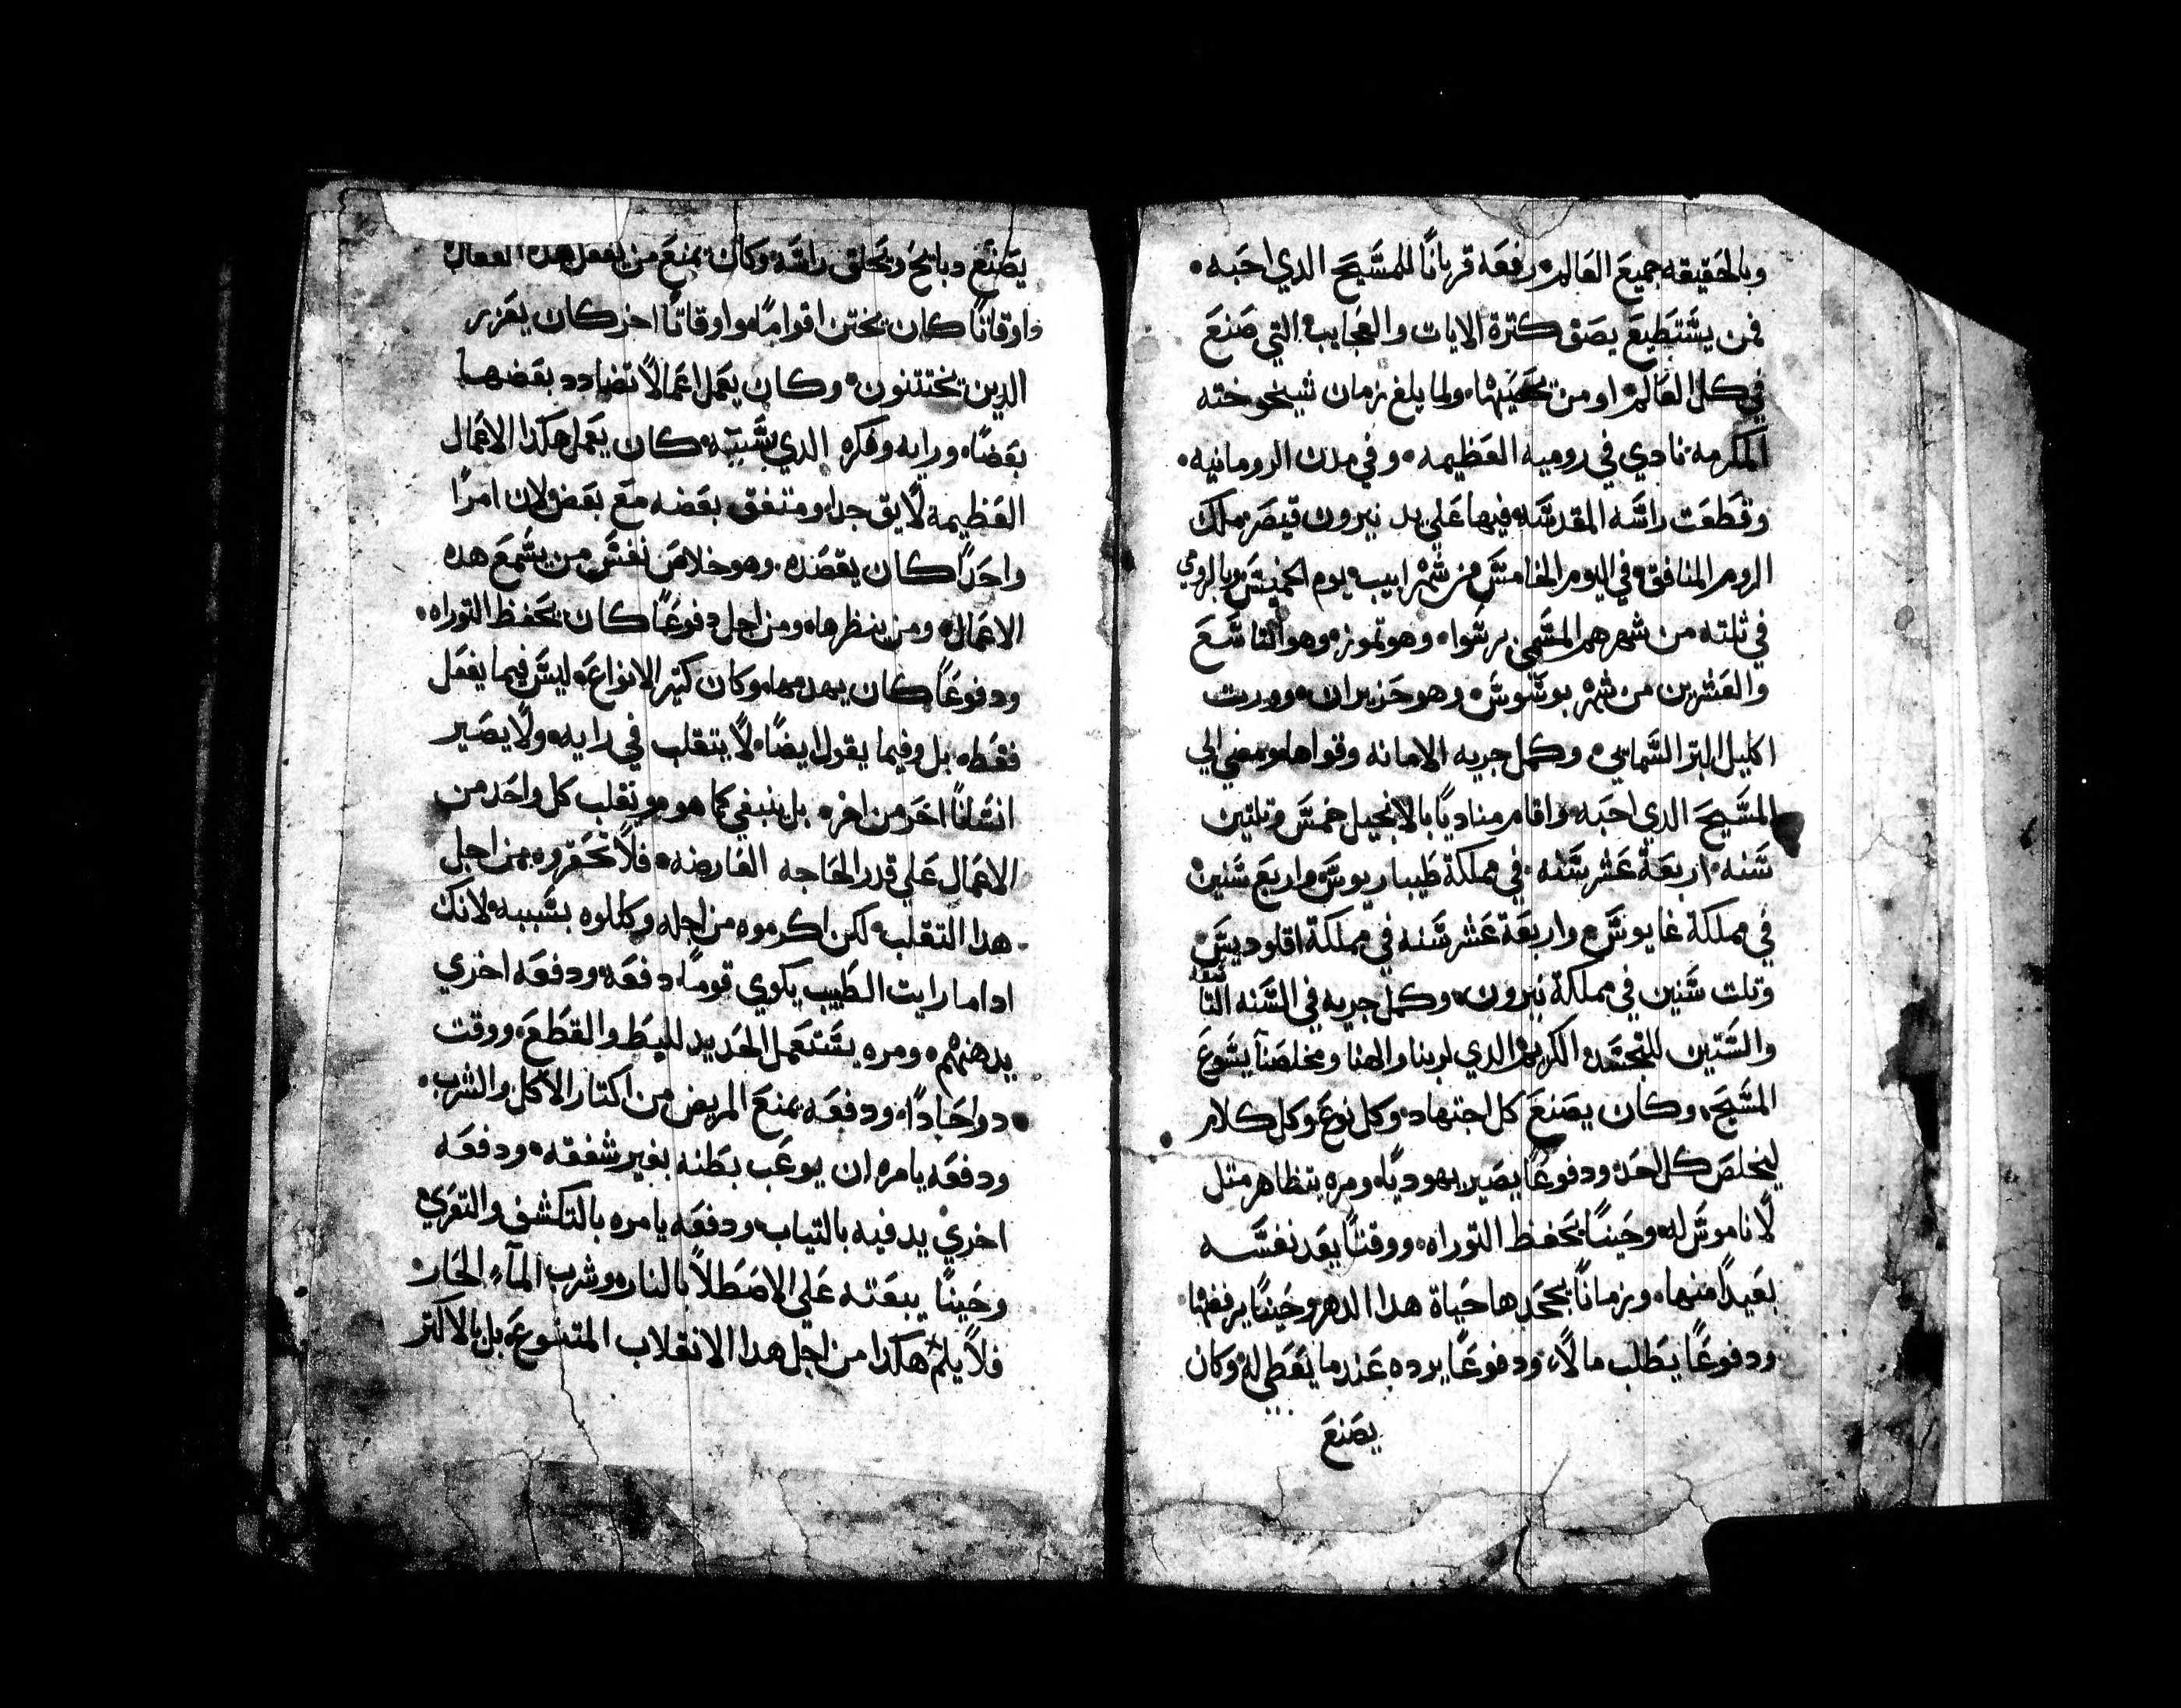 وبالحقيقه جميع العالم رفعه قربانًا للمسيح الدي احبه
فمن يستطيع يصف كترة الايات والعجايب التي صنع
في كل العالم او من ولما بلغ زمان شيخوخته
المكرمه نادي في روميه العظيمه وفي مدن الرومانيه
وقطعت راسه المقدسه فيها علي يد نيرون قيصر ملك
الروم المنافق في اليوم الخامس من شهر ابيب يوم الخميس وبالرومي
في ثلثه من شهرهم المسمي وهو تموز وهو التاسع
والعشرين من شهر وهو حزيران وورت
اكليل البر السمايي وكمل جريه الامانه وقواها ومضي الي
المسيح الدي احبه واقام مناديًا بالانجيل خمس وتلتين
سنه اربعة عشر سنه في مملكة طيباريوس واربع سنين
في مملكة غايوس واربعة عشر سنه في مملكة اقلوديس
وتلت سنين في مملكة نيرون وكمل جريه في السنه التاسعه
والستين للتجسد الكريم الدي لربنا والهنا ومخلصنا يسوع
المسيح وكان يصنع كل اجتهاد وكل نوع وكل كلام
ليخلص كل احد ودفوعًا يصير يهوديًا ومره يتظاهر متل
لا ناموس له وحينًا يحفظ التوراه ووقتًا يعد نفسه
بعيدًا منها وزمانًا يجحدها حياة هدا الدهر وحينًا يرفضها
ودفوعًا يطلب مالًا ودفوعًا يرده عندما يعطي له وكان
يصنع
يصنع دبايح ويحلق راسه وكان يمنع من يفعل هده الفعال
واوقاتًا كان يختن اقوامًا واوقاتًا اخر كان يفزر
الدين يختتنون وكان يعمل اعمالًا تضادد بعضها
بعضًا ورايه وفكره الدي بسببه كان يعمل هكدا الاعمال
العظيمه لايق جدا ومتفق بعضه مع بعض لان امرًا
واحدًا كان يقصده وهو خلاص نفس من يسمع هده
الاعمال ومن ينظرها ومن اجل دفوعًا كان يحفظ التوراه
ودفوعًا كان يهدمها وكان كتير الانواع ليس فيما يفعل
فقط بل وفيما يقول ايضًا لا يتقلب في رايه ولا يصير
انسانًا اخر من اخر بل ينبغي كما هو تقلب كل واحد من
الاعمال علي قدر الحاجه العارضه فلا تحقروه من اجل
هدا التقلب لكن اكرموه من اجله وكللوه بسببه لانك
ادا ما رايت الطبيب يكوي قومًا دفعه ودفعه اخري
يدهنهم ومره يستعمل الحديد للبط والقطع ووقت
دوا حادًا ودفعه يمنع المريض من اكتار الاكل والشرب
ودفعه يامره ان يوعب بطنه بغير شفقه ودفعه
اخري يدفيه بالتياب ودفعه يامره بالتكشف والتعري
وحينًا يبعته علي الاصطلا بالنار وشرب المآء الحار
فلا يلم هكدا من اجل هدا الانقلاب المتنوع بل بالاكتر